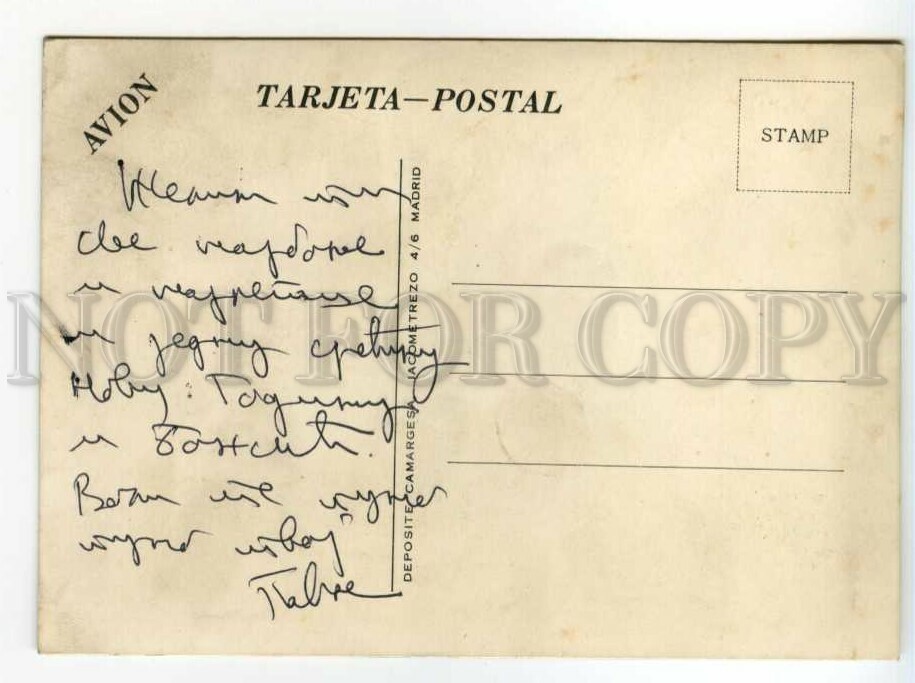 AVION
TARJETA—POSTAL
STAMP
Желим ти
све најбоље
и најлепше
и једну срећну
Нову Годину
и Божић.
Воли те пуно
пуно твој
Павле
DEPOSITE CAMARGESA JACOMETREZO 4/6 MADRID
NOT FOR COPY